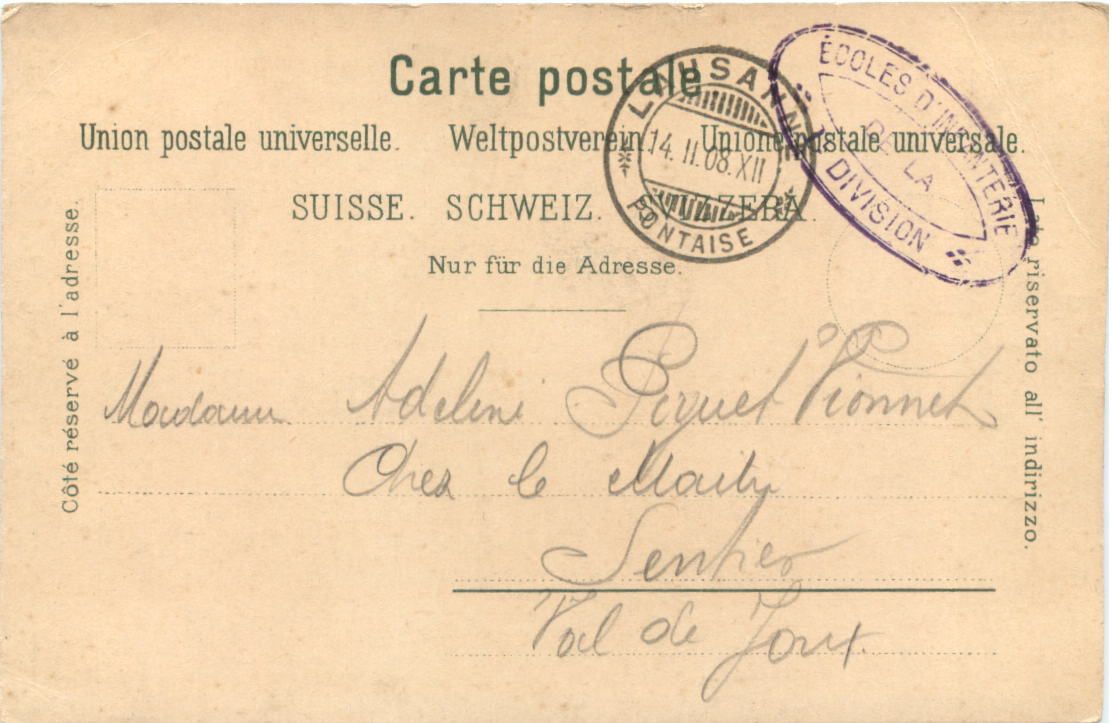 Carte postale
Union postale universelle. Weltpostverein. Unione postale universale.
SUISSE. SCHWEIZ. SVIZZERA.
Nur für die Adresse.
Côté réservé à l'adresse.
Lato riservato all' indirizzo.
LAUSANNE
14. II. 08. XII
PONTAISE
ÉCOLES D'INFANTERIE
DE LA
DIVISION
Madame Adeline Piguet Vionnet
Chez le
Sentier
Val de Joux